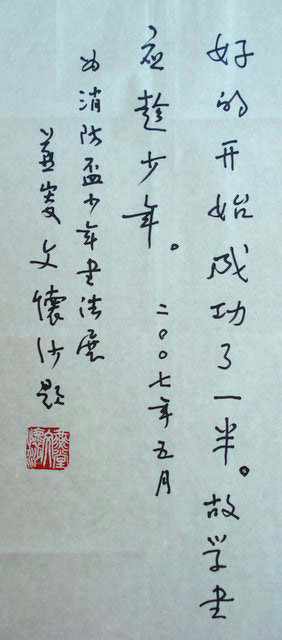 好的开始成功了一半。故学書
应趁少年。二〇〇七年五月
为消防盃少年書法展
燕叟文懷沙题